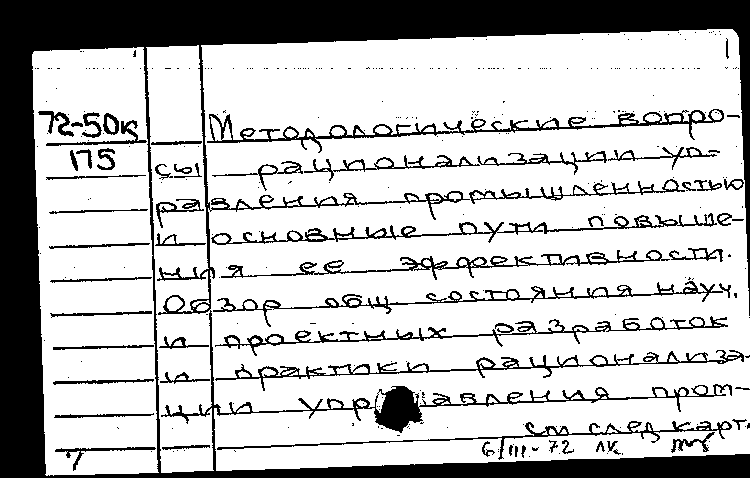 72-50к Методологические вопро-
175 сы рационализации уп-
равления промышленностью
и основные пути повыше-
ния ее эффективности.
Обзор общ. состояния науч.
и проектных разработок
и практики рационализа-
ции управления пром-
см след карт.
6/III-72 лк